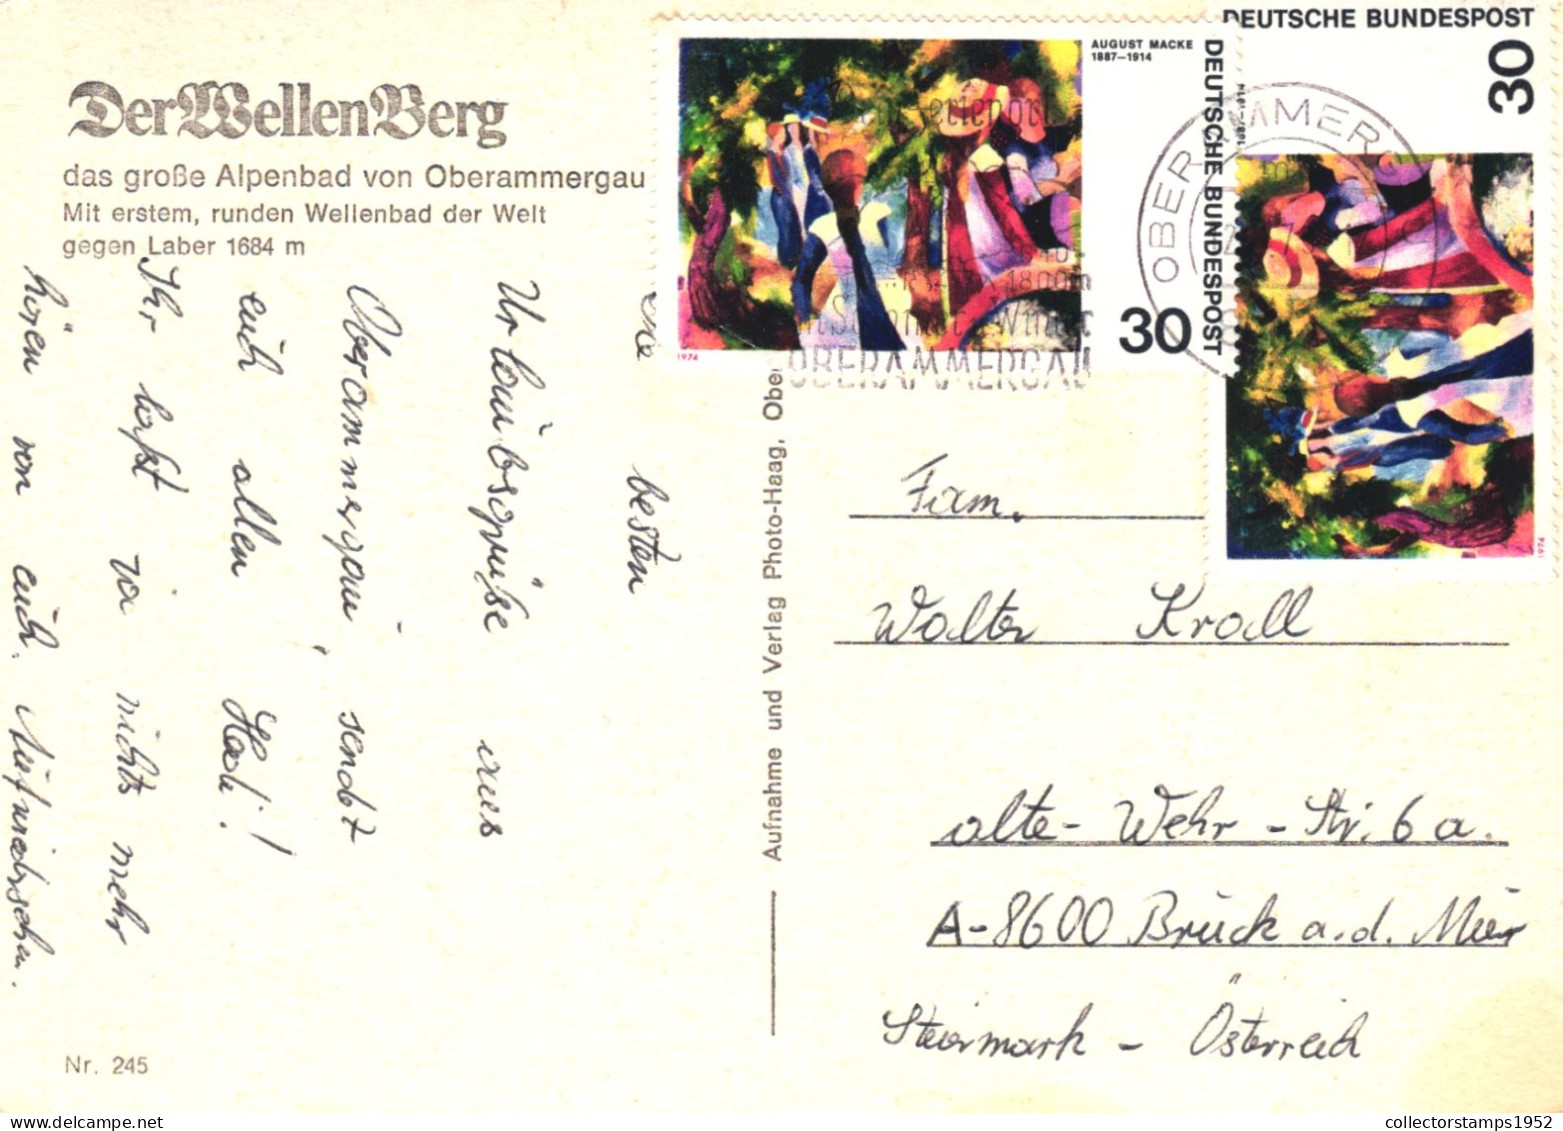 Der WellenBerg
das große Alpenbad von Oberammergau
Mit erstem, runden Wellenbad der Welt
gegen Laber 1684 m
besten
Urlaubsgrüße aus
Oberammergau, sendet
euch allen Hedi!
Ihr laßt ja nichts mehr
hören von euch. Aufwiedersehen.
Nr. 245
Aufnahme und Verlag Photo-Haag, Obe
AUGUST MACKE
1887–1914
DEUTSCHE BUNDESPOST
30
1974
DEUTSCHE BUNDESPOST
30
1974
OBERAMMERG
Ferienor
1800m
OBERAMMERGAU
Fam.
Walter Krall
alte-Wehr-Str. 6a.
A-8600 Bruck a.d. Mur
Steiermark - Österreich
collectorstamps1952